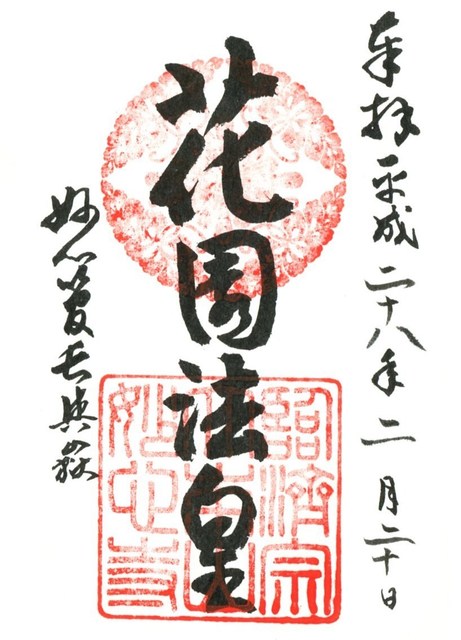 奉拝 平成二十八年二月二十日
花園法皇
妙心管長興嶽
臨濟宗
妙心寺